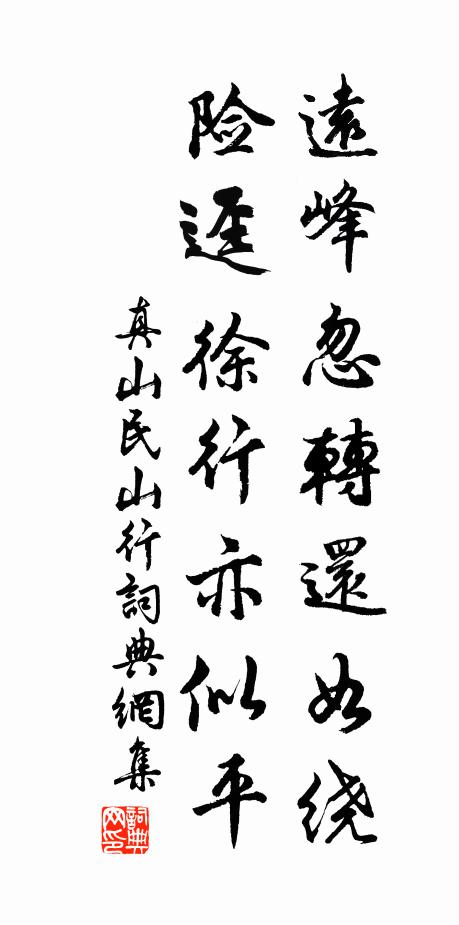 遠峰忽轉還如绕
险逕徐行亦似平
真山民山行詞典網集
詞典
网印